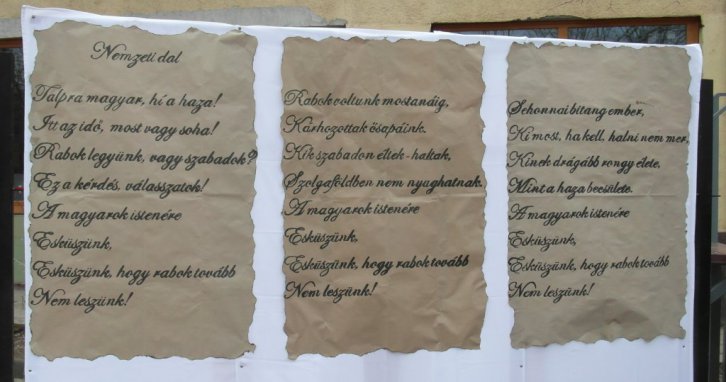 Nemzeti dal
Talpra magyar, hí a haza!
Itt az idő, most vagy soha!
Rabok legyünk, vagy szabadok?
Ez a kérdés, válasszatok!
A magyarok istenére
Esküszünk,
Esküszünk, hogy rabok tovább
Nem leszünk!
Rabok voltunk mostanáig,
Kárhozottak ősapáink.
Kik szabadon éltek-haltak,
Szolgaföldben nem nyughatnak.
A magyarok istenére
Esküszünk,
Esküszünk, hogy rabok tovább
Nem leszünk!
Sehonnai bitang ember,
Ki most, ha kell, halni nem mer,
Kinek drágább rongy élete,
Mint a haza becsülete.
A magyarok istenére
Esküszünk,
Esküszünk, hogy rabok tovább
Nem leszünk!